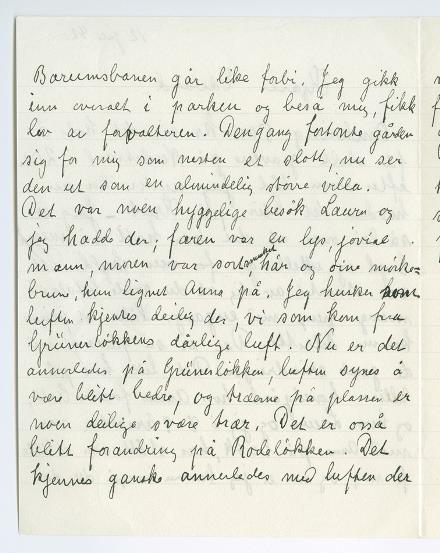 Bærumsbanen går like forbi. Jeg gikk
inn overalt i parken og beså mig, fikk
lov av forvalteren. Dengang fortonte gården
sig for mig som nesten et slott, nu ser
den ut som en almindelig større villa.
Det var noen hyggelige besøk Laura og
jeg hadde der, faren var en lys, jovial
mann, moren var sortsmusket hår og øine mørke-
brune, hun lignet Anna på. Jeg husker
luften kjentes deilig der, vi som kom fra
Grünerløkkens dårlige luft. Nu er det
annerledes på Grünerløkken, luften synes å
være blitt bedre, og trærne på plassen er
noen deilige svære trær. Det er også
blitt forandring på Rodeløkken. Det
kjennes ganske annerledes med luften der